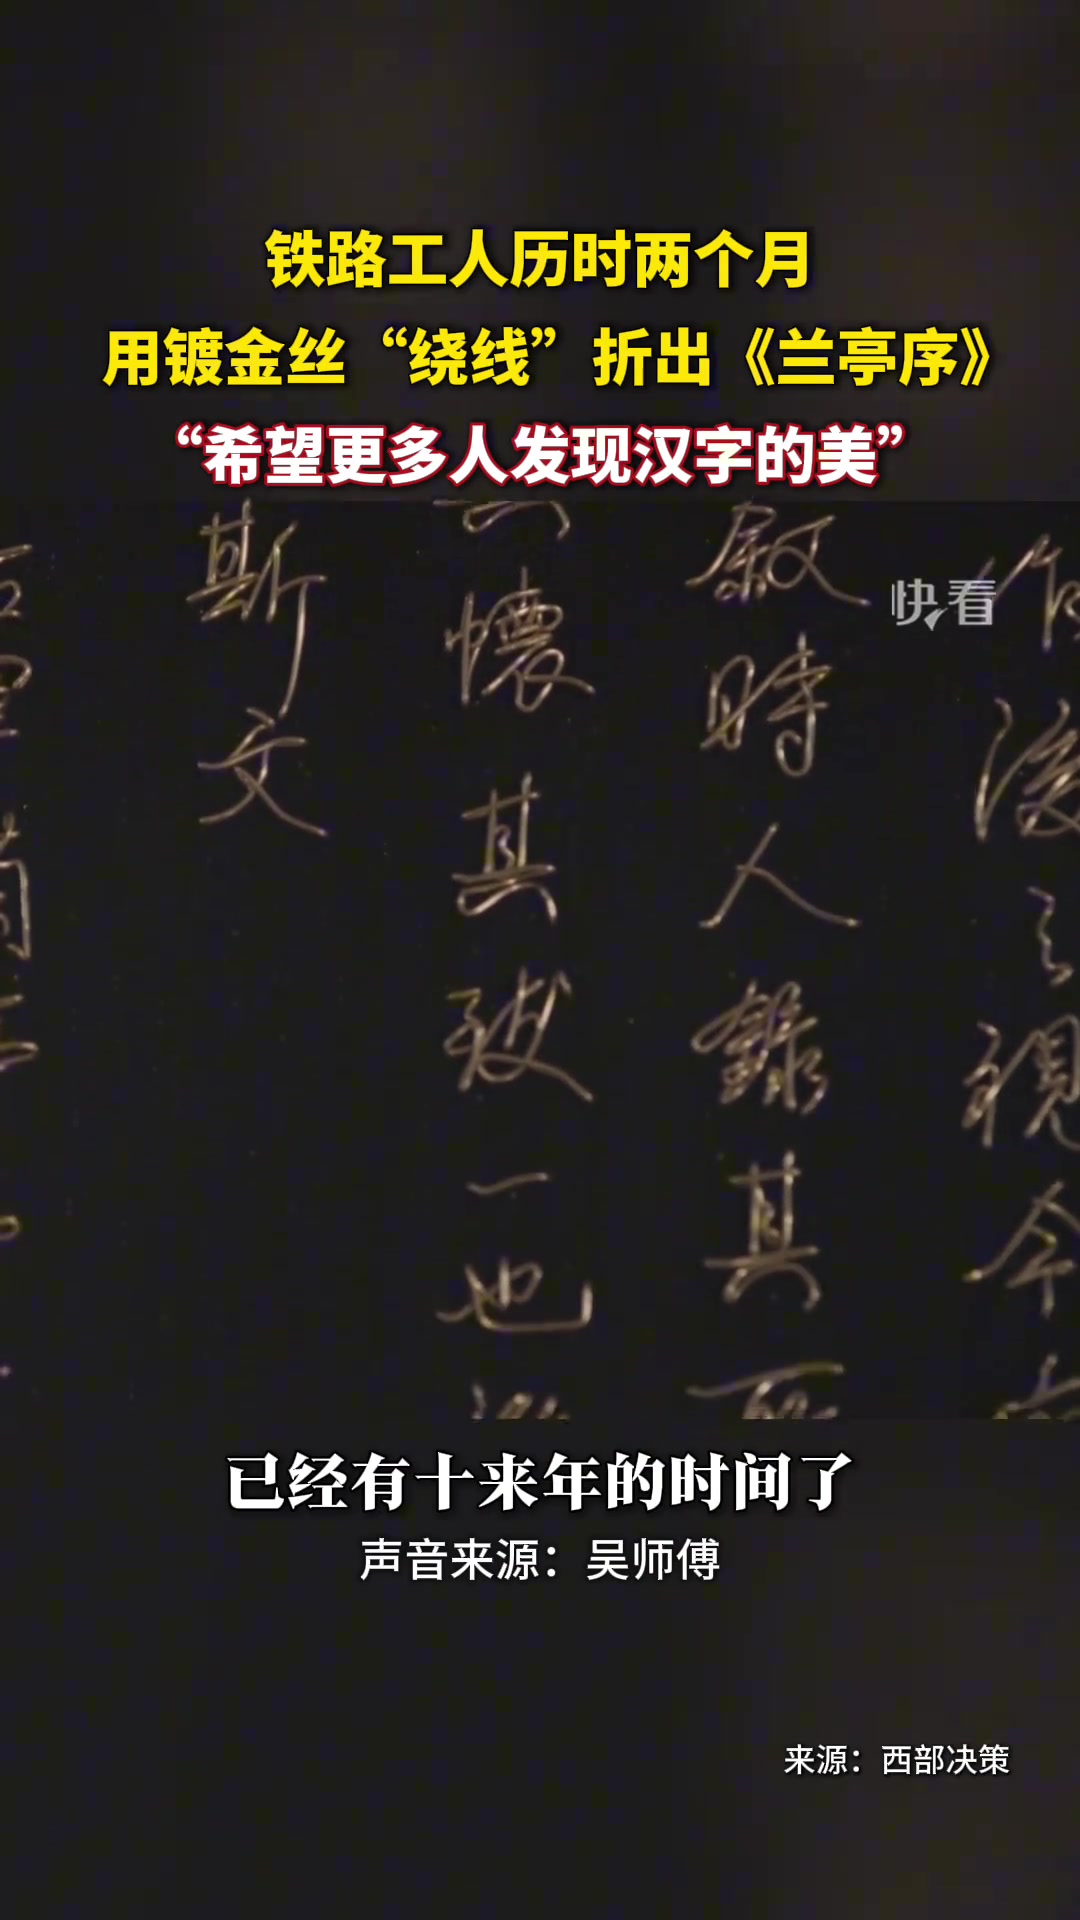 铁路工人历时两个月
用镀金丝“绕线”折出《兰亭序》
“希望更多人发现汉字的美”
快看
後之視今
叙時人錄其所
懷其致一也
斯文
已经有十来年的时间了
声音来源：吴师傅
来源：西部决策